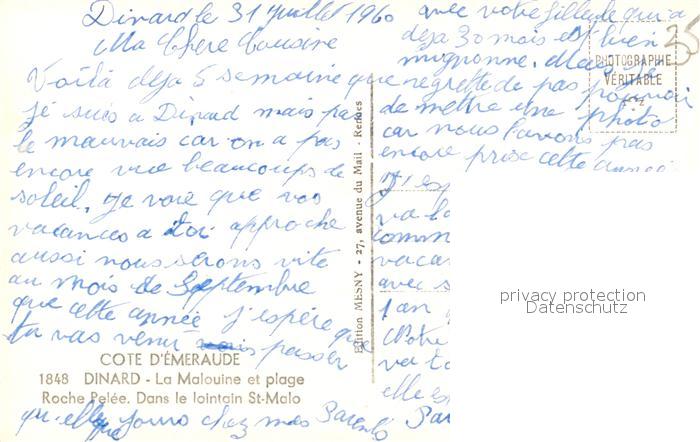 Dinard le 31 Juillet 1960
Ma Chere Cousine
Voilà déja 5 semaine que
je suis a Dinard mais pas
le mauvais car on a pas
encore vue beaucoups de
soleil. Je voie que vos
vacances a toi approche
aussi nous serons vite
au mois de Septembre
que cette année j'espère que
tu vas venir passer
qu.elque jours chez mes Parents
avec votre fille de qui a
deja 30 mois et bien
mignonne.
regrette de pas pouvoir
de mettre une photo
car nous l'avons pas
encore prise cette année
J'esp
va b
comm
vacan
avec s
1 an
Notre
va t
elle es
Par
25
PHOTOGRAPHIE
VÉRITABLE
Edition MESNY - 27, avenue du Mail - Rennes
COTE D'ÉMERAUDE
1848 DINARD - La Malouine et plage
Roche Pelée. Dans le lointain St-Malo
privacy protection
Datenschutz